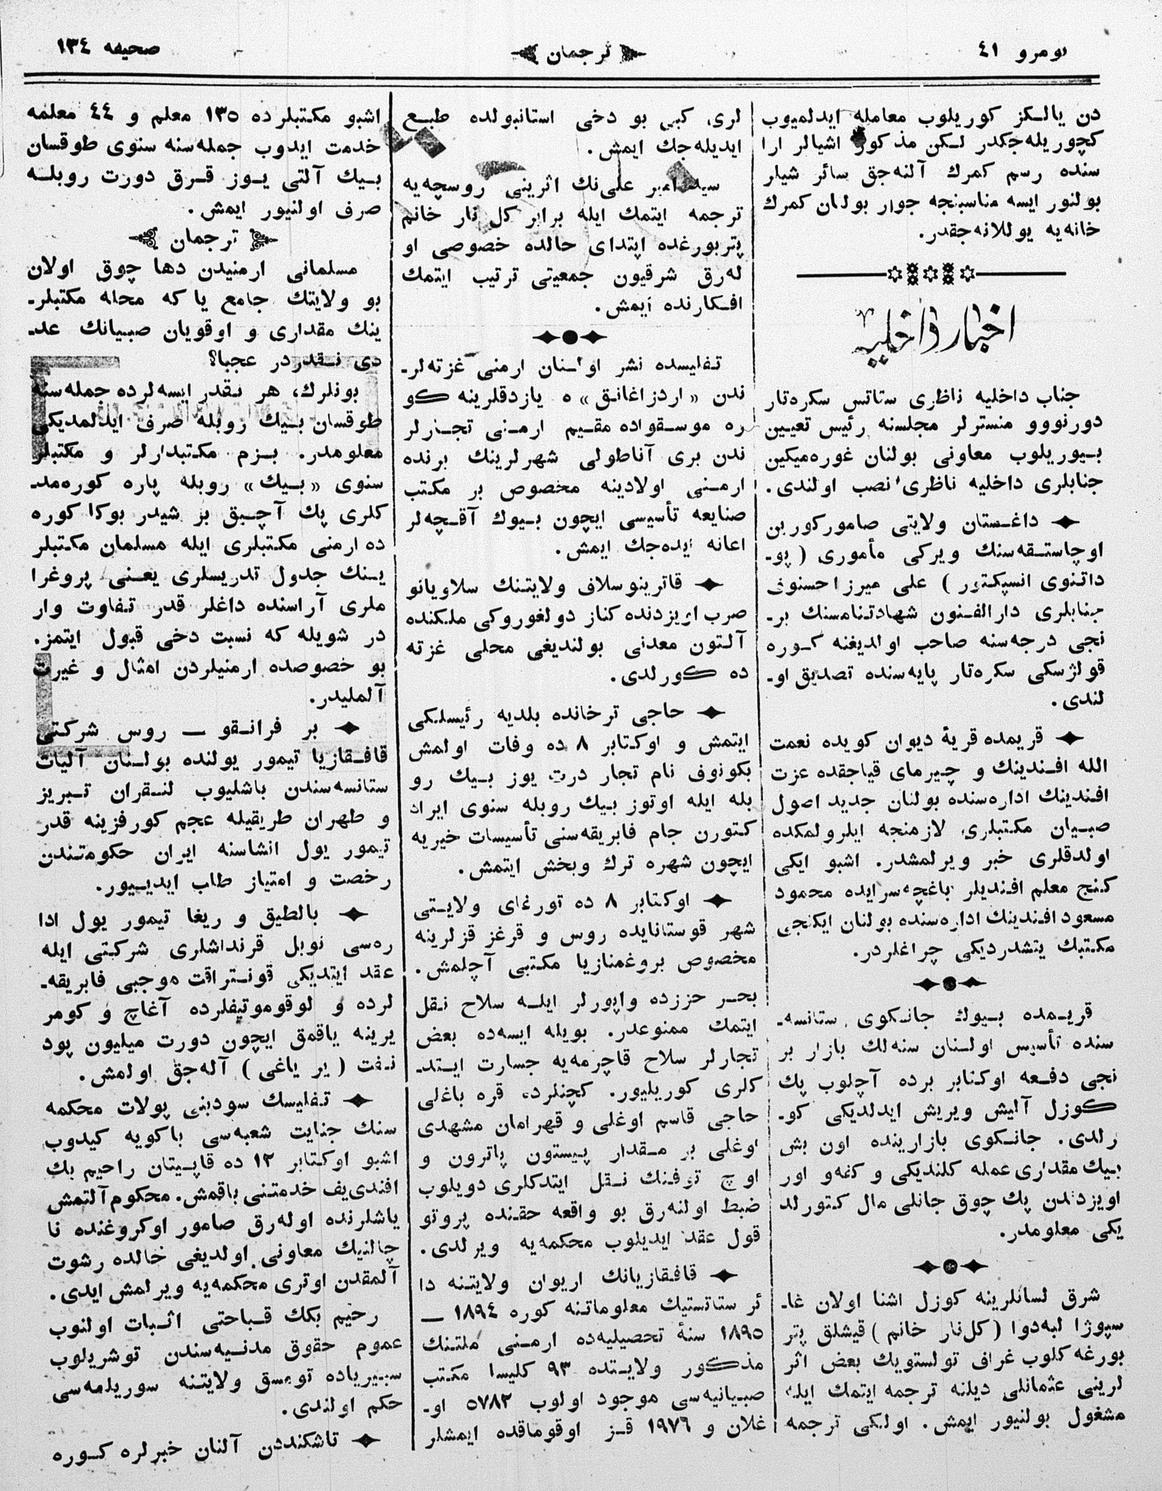 نومرو ٤١
ترجمان
صحيفه ١٣٤
دن يالكز كوريلوب معامله ايدلميوب
كچوريله‌جكدر لكن مذكور اشيالر ارا
سنده رسم كمرك آلنه‌جق سائر شيلر
بولنور ايسه مناسبنجه جوار بولنان كمرك
خانه‌يه يوللانه‌جقدر.
اخبار داخليه
جناب داخليه ناظرى ستاتس سكره‌تار
دورنووو منسترلر مجلسنه رئيس تعيين
بيوريلوب معاونى بولنان غوره‌ميكين
جنابلرى داخليه ناظرى نصب اولندى.
داغستان ولايتى صاموركور بن
اوچاستقه‌سنك ويركى مأمورى (پو-
داتنوى انسپكتور) على ميرزا حسنوف
جنابلرى دار الفنون شهادتنامه‌سنك بر-
نجى درجه‌سنه صاحب اولديغنه كوره
قولژسكى سكره‌تار پايه‌سنده تصديق او-
لندى.
قريمده قريهٔ ديوان كويده نعمت
الله افندينك و چيرماى قياجقده عزت
افندينك اداره‌سنده بولنان جديد اصول
صبيان مكتبلرى لازمنجه ايلرولمكده
اولدقلرى خبر ويرلمشدر. اشبو ايكى
كنج معلم افنديلر باغچه سرايده محمود
مسعود افندينك اداره‌سنده بولنان ايكنجى
مكتبك يتشدرديكى چراغلردر.
قريمده بيوك جانكوى ستانسه-
سنده تأسيس اولنان سنه‌لك بازار بر
نجى دفعه اوكتابر برده آچلوب پك
كوزل آليش ويريش ايدلديكى كو-
رلدى. جانكوى بازارينده اون بش
بيك مقدارى عمله كلنديكى و كفه‌و اور
اويزدندن پك چوق جانلى مال كتورلد
يكى معلومدر.
شرق لسانلرينه كوزل اشنا اولان غا-
سپوژا لبه‌دوا (كل‌نار خانم) قيشلق پتر
بورغه كلوب غراف تولستويك بعض اثر
لرينى عثمانلى ديلنه ترجمه ايتمك ايله
مشغول بولنيور ايمش. اولكى ترجمه
لرى كبى بو دخى استانبولده طبع
ايديله‌جك ايمش.
سيد امير على‌نك اثرينى روسچه‌يه
ترجمه ايتمك ايله برابر كل نار خانم
پتربورغده اپتداى حالده خصوصى او
له‌رق شرقيون جمعيتى ترتيب ايتمك
افكارنده ايمش.
تفليسده نشر اولنان ارمنى غزته‌لر-
ندن «اردزاغانق» ه يازدقلرينه كو
ره موسقواده مقيم ارمنى تجارلر
ندن برى آناطولى شهرلرينك برنده
ارمنى اولادينه مخصوص بر مكتب
صنايعه تأسيسى ايچون بيوك آقچه‌لر
اعانه ايده‌جك ايمش.
قاترينوسلاف ولايتنك سلاويانو
صرب اويزدنده كناز دولغوروكى ملكنده
آلتون معدنى بولنديغى محلى غزته
ده كورلدى.
حاجى ترخانده بلديه رئيسلكى
ايتمش و اوكتابر ٨ ده وفات اولمش
بكونوف نام تجار درت يوز بيك رو
بله ايله اوتوز بيك روبله سنوى ايراد
كتورن جام فابريقه‌سنى تأسيسات خيريه
ايچون شهره ترك وبخش ايتمش.
اوكتابر ٨ ده تورغاى ولايتى
شهر قوستانايده روس و قرغز قزلرينه
مخصوص بروغمنازيا مكتبى آچلمش.
بحر خزرده واپورلر ايله سلاح نقل
ايتمك ممنوعدر. بويله ايسه‌ده بعض
تجارلر سلاح قاچرمه‌يه جسارت ايتد-
كلرى كوريليور. كچنلرده قره باغلى
حاجى قاسم اوغلى و قهرامان مشهدى
اوغلى بر مقدار پيستون پاترون و
اوچ توفنك نقل ايتدكلرى دويلوب
ضبط اولنه‌رق بو واقعه حقنده پروتو
قول عقد ايديلوب محكمه‌يه ويرلدى.
قافقازيانك اريوان ولايتنه دا
ئر ستاتستيك معلوماتنه كوره ١٨٩٤ —
١٨٩٥ سنهٔ تحصيليه‌ده ارمنى ملتنك
مذكور ولايتده ٩٣ كليسا مكتب
صبيانيه‌سى موجود اولوب ٥٧٨٢ او-
غلان و ١٩٧٦ قز اوقوماقده ايمشلر
اشبو مكتبلرده ١٣٥ معلم و ٤٤ معلمه
خدمت ايدوب جمله‌سنه سنوى طوقسان
بيك آلتى يوز قرق دورت روبله
صرف اولنيور ايمش.
ترجمان
مسلمانى ارمنيدن دها چوق اولان
بو ولايتك جامع ياكه محله مكتبلر-
ينك مقدارى و اوقويان صبيانك عد-
دى نقدر در عجبا؟
بونلرك، هر نقدر ايسه‌لرده جمله‌سنه
طوقسان بيك روبله صرف ايدلمديكى
معلومدر. بزم مكتبدارلر و مكتبلر
سنوى «بيك» روبله پاره كوره‌مد-
كلرى پك آچيق بر شيدر بوكا كوره
ده ارمنى مكتبلرى ايله مسلمان مكتبلر
ينك جدول تدريسلرى يعنى پروغرا
ملرى آراسنده داغلر قدر تفاوت وار
در شويله كه نسبت دخى قبول ايتمز.
بو خصوصده ارمنيلردن امثال و غيرت
آلمليدر.
بر فرانقو — روس شركتى
قافقازيا تيمور يولنده بولنان آليات
ستانسه‌سندن باشليوب لنقران تبريز
و طهران طريقيله عجم كورفزينه قدر
تيمور يول انشاسنه ايران حكومتندن
رخصت و امتياز طلب ايدييور.
بالطيق و ريغا تيمور يول ادا
ره‌سى نوبل قرنداشلرى شركتى ايله
عقد ايتديكى قونتراقت موجبى فابريقه-
لرده و لوقوموتيفلرده آغاچ و كومر
يرينه ياقمق ايچون دورت ميليون پود
نفت (ير ياغى) آله‌جق اولمش.
تفليسك سودبنى پولات محكمه
سنك جنايت شعبه‌سى باكويه كيدوب
اشبو اوكتابر ١٢ ده قاپيتان راحيم بك
افنديف خدمتنى باقمش. محكوم آلتمش
ياشلرنده اوله‌رق صامور اوكروغنده نا
چالنيك معاونى اولديغى حالده رشوت
آلمقدن اوترى محكمه‌يه ويرلمش ايدى.
رحيم بكك قباحتى اثبات اولنوب
عموم حقوق مدنيه‌سندن توشريلوب
سيبرياده تومسق ولايتنه سوريلمه‌سى
حكم اولندى.
تاشكنددن آلنان خبرلره كوره